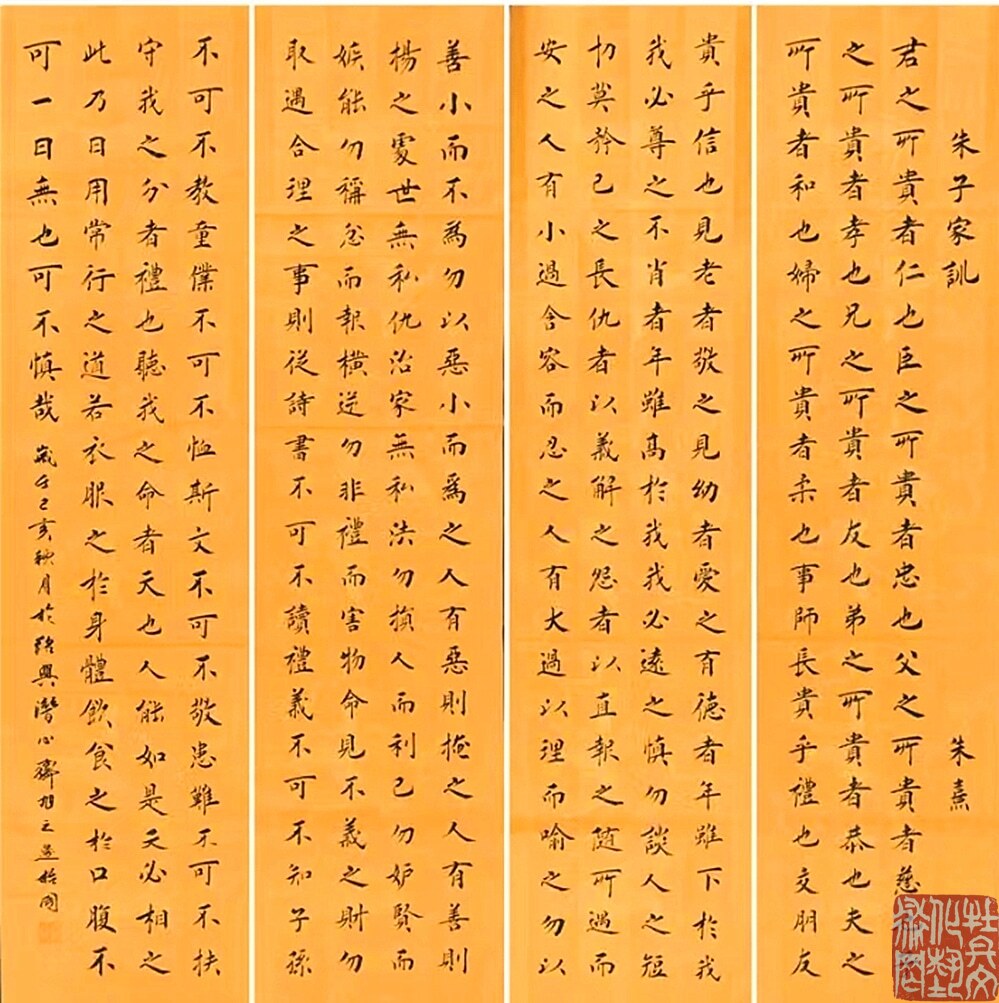 朱子家訓 朱熹
君之所貴者仁也臣之所貴者忠也父之所貴者慈
之所貴者孝也兄之所貴者友也弟之所貴者恭也夫之
所貴者和也婦之所貴者柔也事師長貴乎禮也交朋友
貴乎信也見老者敬之見幼者愛之有德者年雖下於我
我必尊之不肖者年雖高於我我必遠之慎勿談人之短
切莫矜己之長仇者以義解之怨者以直報之隨所遇而
安之人有小過含容而忍之人有大過以理而喻之勿以
善小而不為勿以惡小而為之人有惡則掩之人有善則
揚之處世無私仇治家無私法勿損人而利己勿妒賢而
嫉能勿稱忿而報橫逆勿非禮而害物命見不義之財勿
取遇合理之事則從詩書不可不讀禮義不可不知子孫
不可不教童僕不可不恤斯文不可不敬患難不可不扶
守我之分者禮也聽我之命者天也人能如是天必相之
此乃日用常行之道若衣服之於身體飲食之於口腹不
可一日無也可不慎哉 歲在己亥秋月於紹興潛心齋